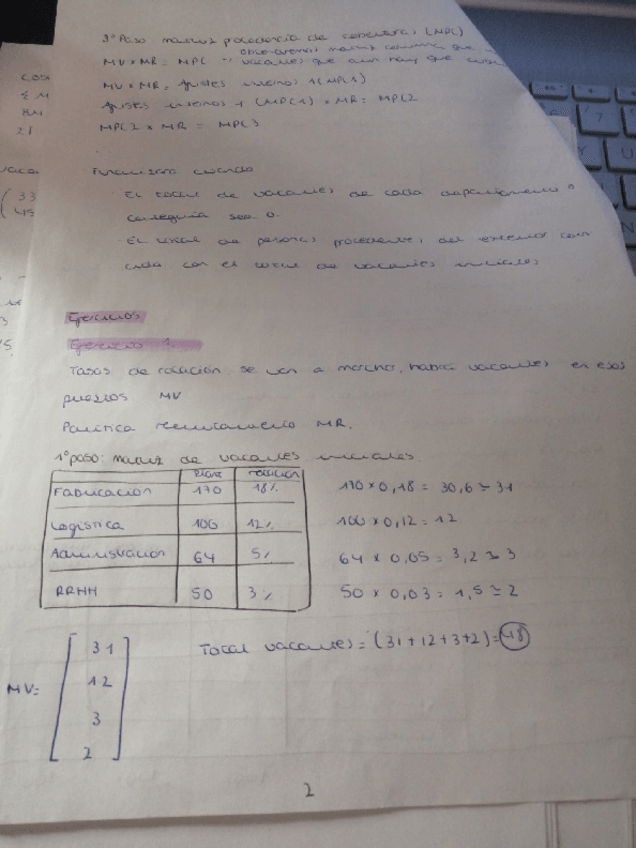 matriz procedencia de cobertura (MPC)
MV x MR = MPC obtenemos matriz columna que
vacantes que aun hay que
MV x MR = Ajustes internos 1 (MPC1)
Ajustes internos 1 (MPC1) x MR = MPC2
MPC2 x MR = MPC3
Finalizará cuando
El total de vacantes de cada departamento o
categoría sea 0.
El total de personas procedentes del exterior coin
cida con el total de vacantes iniciales
Ejercicios
Ejercicio 1.
Tasas de rotación se van a marchar, habrá vacantes en esos
puestos MV
Política reclutamiento MR.
1º paso: matriz de vacantes iniciales.
rotación
Fabricación 170 18% 170 x 0,18 = 30,6 ≃ 31
Logística 100 12% 100 x 0,12 = 12
Administración 64 5% 64 x 0,05 = 3,2 ≃ 3
RRHH 50 3% 50 x 0,03 = 1,5 ≃ 2
Total vacantes = (31+12+3+2) = 48
MV =
31
12
3
2
2